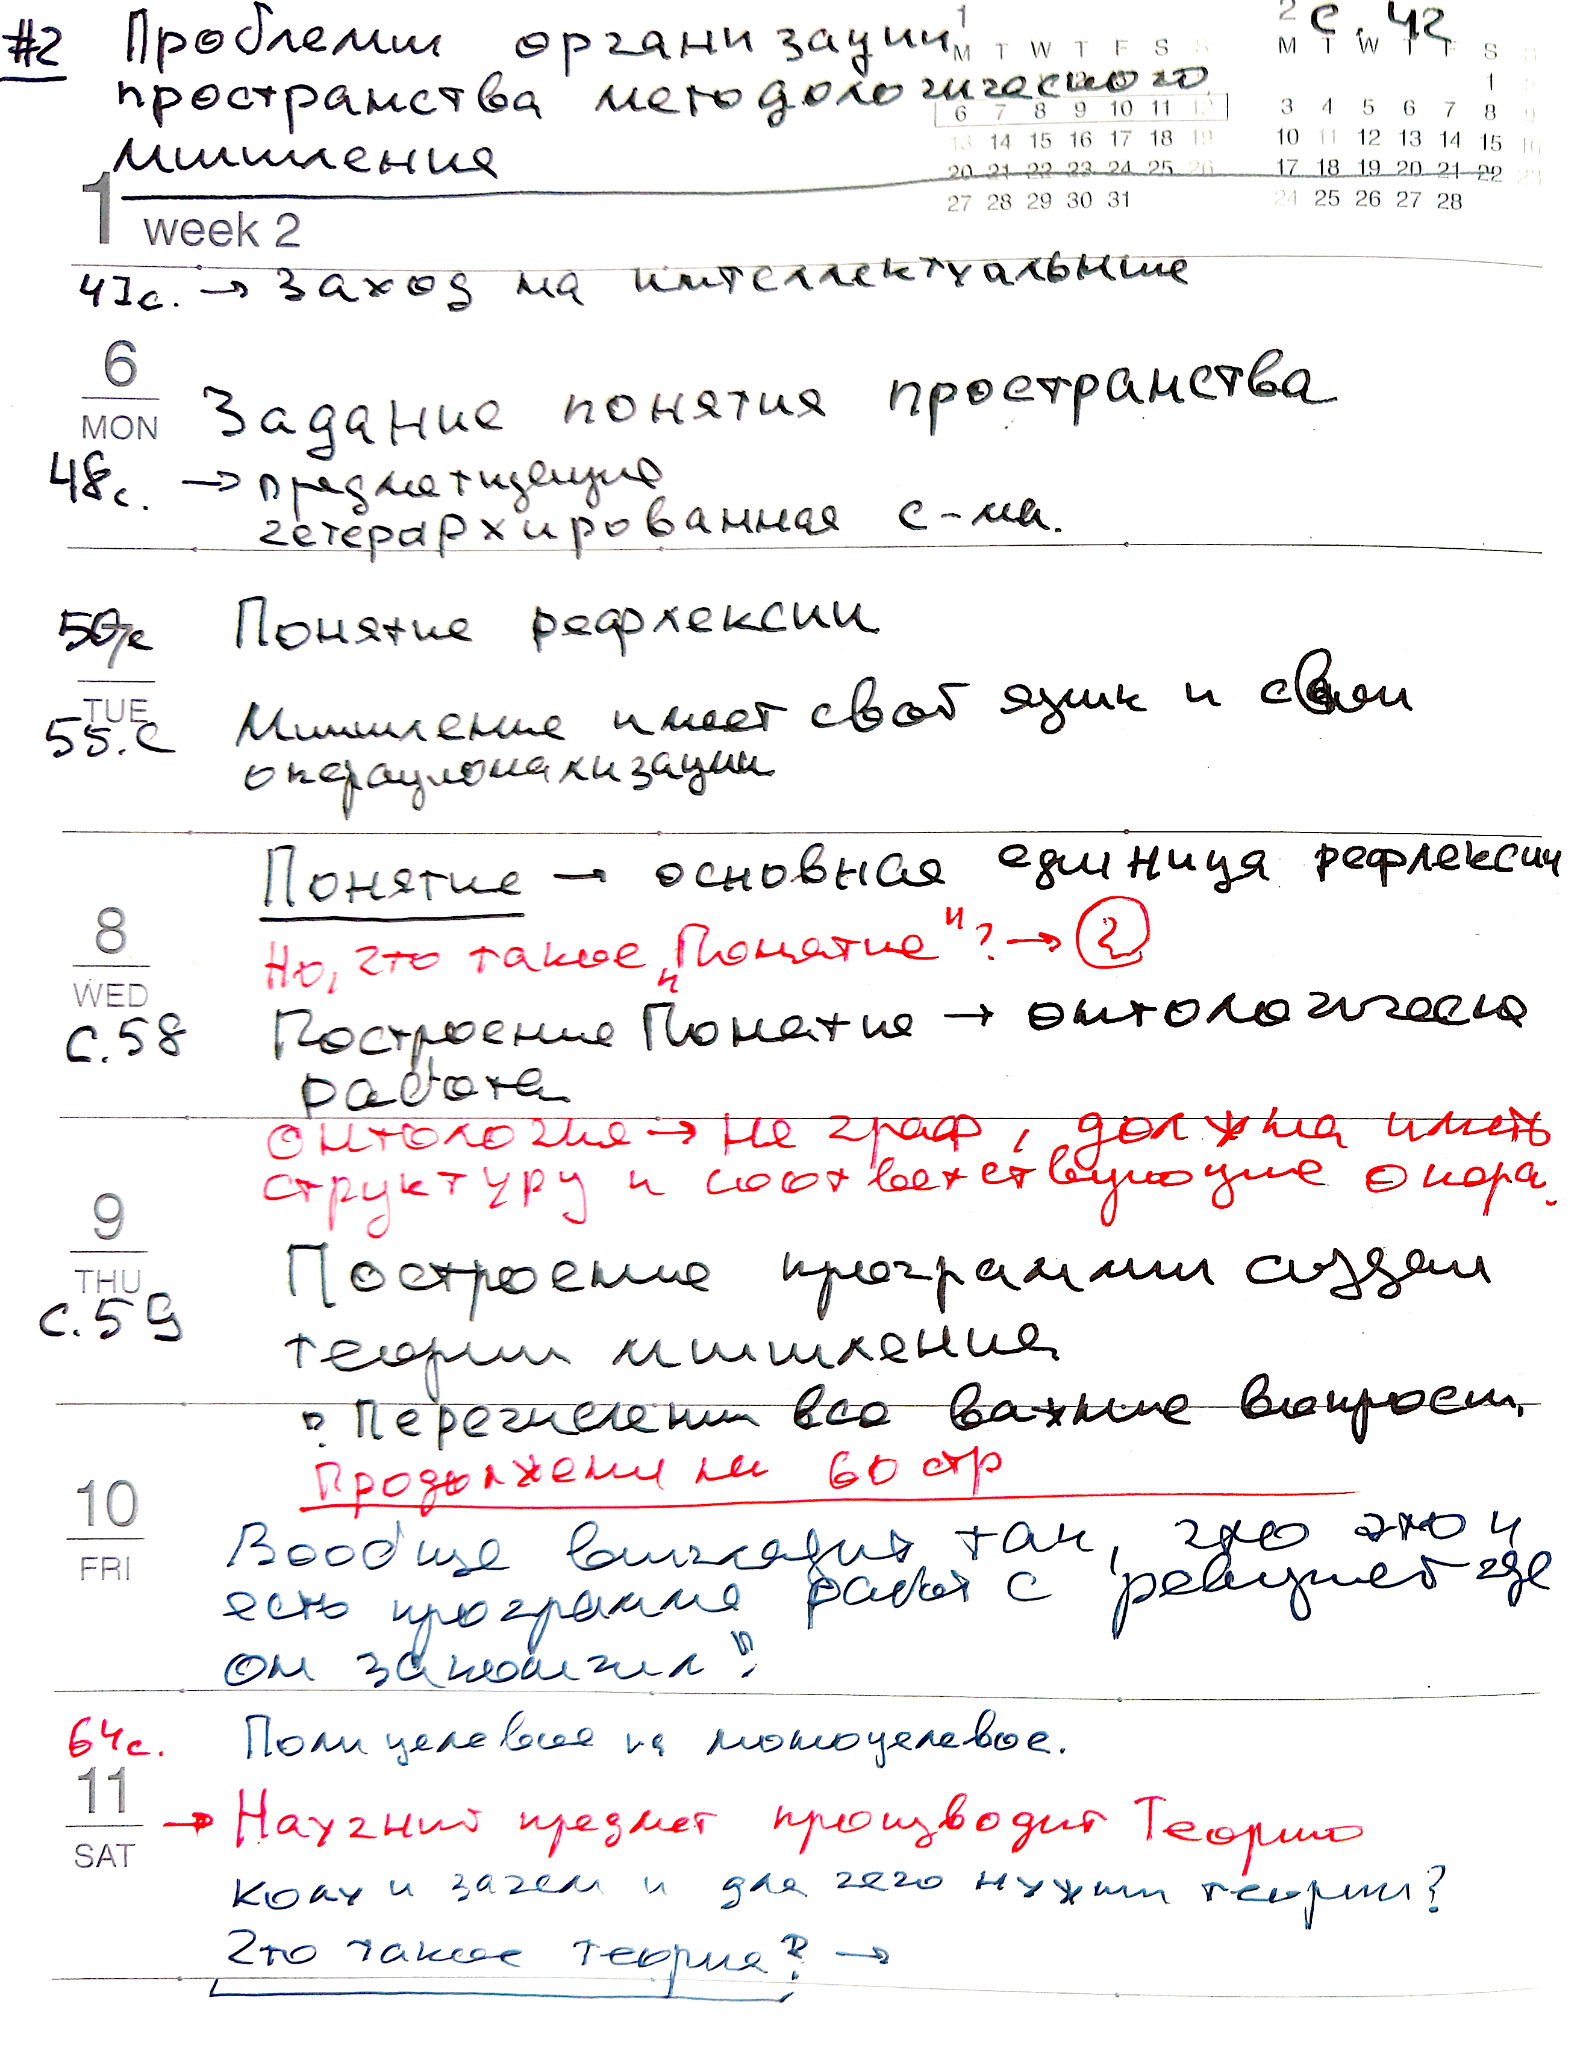 #2 Проблемы организации с. 42
пространства методологического
мышления
1 2
M T W T F S S M T W T F S S
1 2
6 7 8 9 10 11 12 3 4 5 6 7 8 9
13 14 15 16 17 18 19 10 11 12 13 14 15 16
20 21 22 23 24 25 26 17 18 19 20 21 22 23
27 28 29 30 31 24 25 26 27 28
1 week 2
47с. → Заход на интеллектуальные
6
MON
Задание понятия пространства
48с. → предметизация
гетерархированная с-ма.
50с Понятие рефлексии
TUE
55.с Мышление имеет свой язык и свои
операционализации
Понятие → основная единица рефлексии
8
WED
Но, что такое "Понятие"? → 2
с.58 Построение Понятие → онтологическ
работа
Онтология → не граф, должна иметь
структуру и соответствующие опера.
9
THU
с.59 Построение программы создан
теории мышления
? Перечислены все важные вопросы.
Продолжены на 60 стр
10
FRI
Вообще выглядит так, что это и
есть программа работ с где
он закончил?
64с. Полицелевое на моноцелевое.
11
SAT
→ Научный предмет производит Теорию
Кому и зачем и для чего нужны теории?
Что такое теория? →